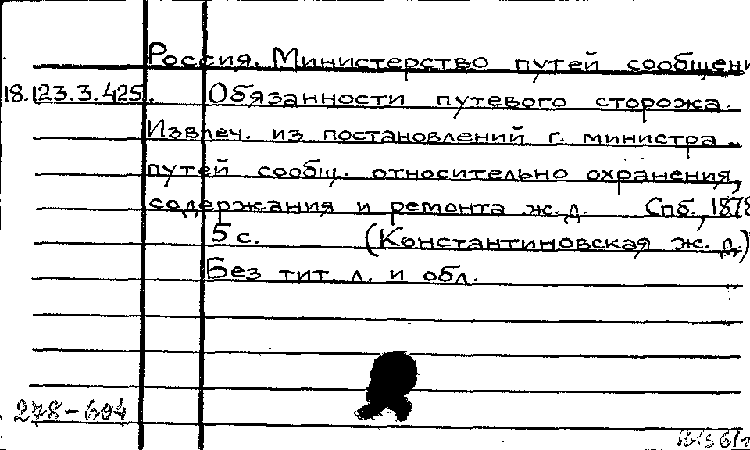 Россия. Министерство путей сообщени
18.123.3.425. Обязанности путевого сторожа.
Извлеч. из постановлений г. министра
путей сообщ. относительно охранения,
содержания и ремонта ж.д. Спб., 1878
5 с. (Константиновская ж.д.)
Без тит л. и обл.
278-604